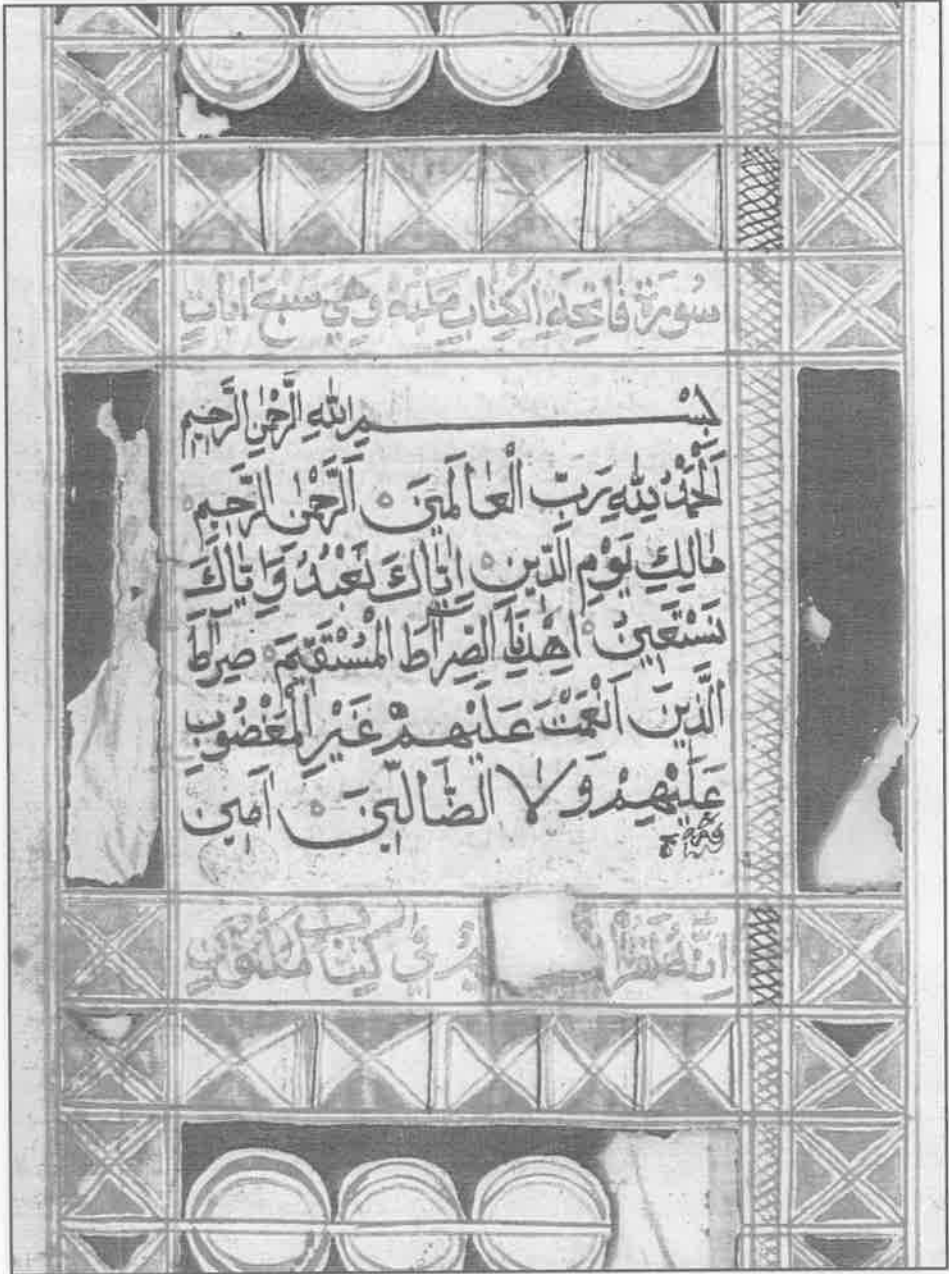 سُورَةُ فَاتِحَةِ الْكِتَابِ مَكِّيَّة وَهِيَ سَبْعُ ايَاتٍ
بِسْمِ اللهِ الرَّحْمٰنِ الرَّحِيمِ
اَلْحَمْدُ لِلّٰهِ رَبِّ الْعَالَمِينَ ۝ اَلرَّحْمٰنِ الرَّحِيمِ ۝
مَالِكِ يَوْمِ الدِّينِ ۝ اِيَّاكَ نَعْبُدُ وَاِيَّاكَ
نَسْتَعِينُ ۝ اِهْدِنَا الصِّرَاطَ الْمُسْتَقِيمَ ۝ صِرَاطَ
الَّذِينَ اَنْعَمْتَ عَلَيْهِمْ غَيْرِ الْمَغْضُوبِ
عَلَيْهِمْ وَلَا الضَّالِّينَ ۝ اٰمِين
اِنَّهُ فِي كِتَابٍ مَكْنُونٍ